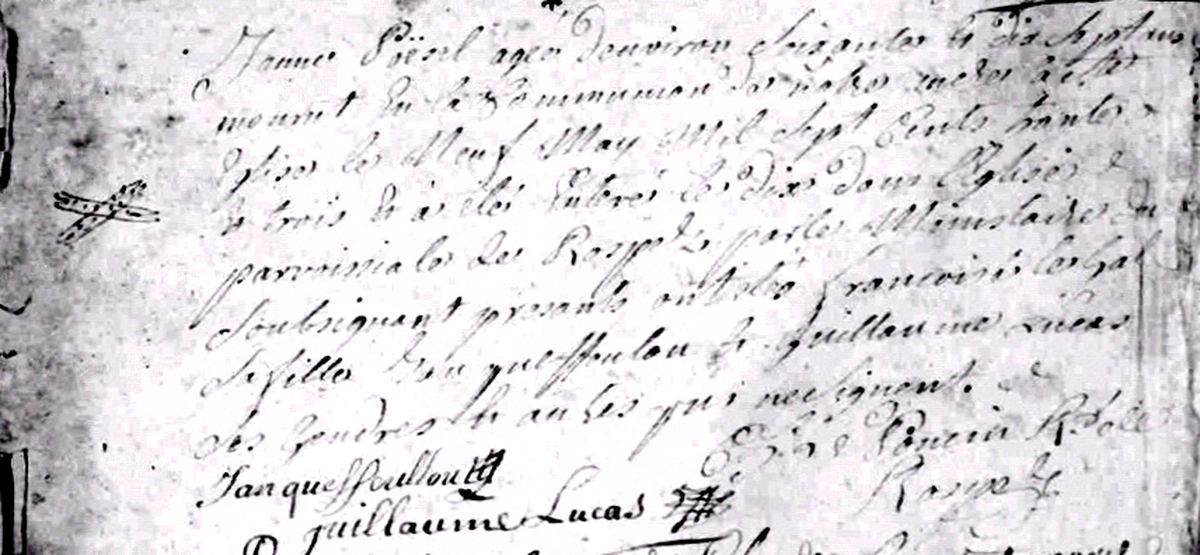 agée denviron soixante et dix sept ans
mourut en la Communion de notre mere ste
Eglise le Neuf May Mil sept Cents trante
et trois et a eté Enteré le dix dans l'Eglise
parroissiale de Rospez par le Ministaire du
soubsignant presants ont etés francoise le gal
sa fille Jan queffeulou et guillaume Lucas
ses gendres et autres qui ne signent.
Janqueffeullou
guillaume Lucas
Rospez